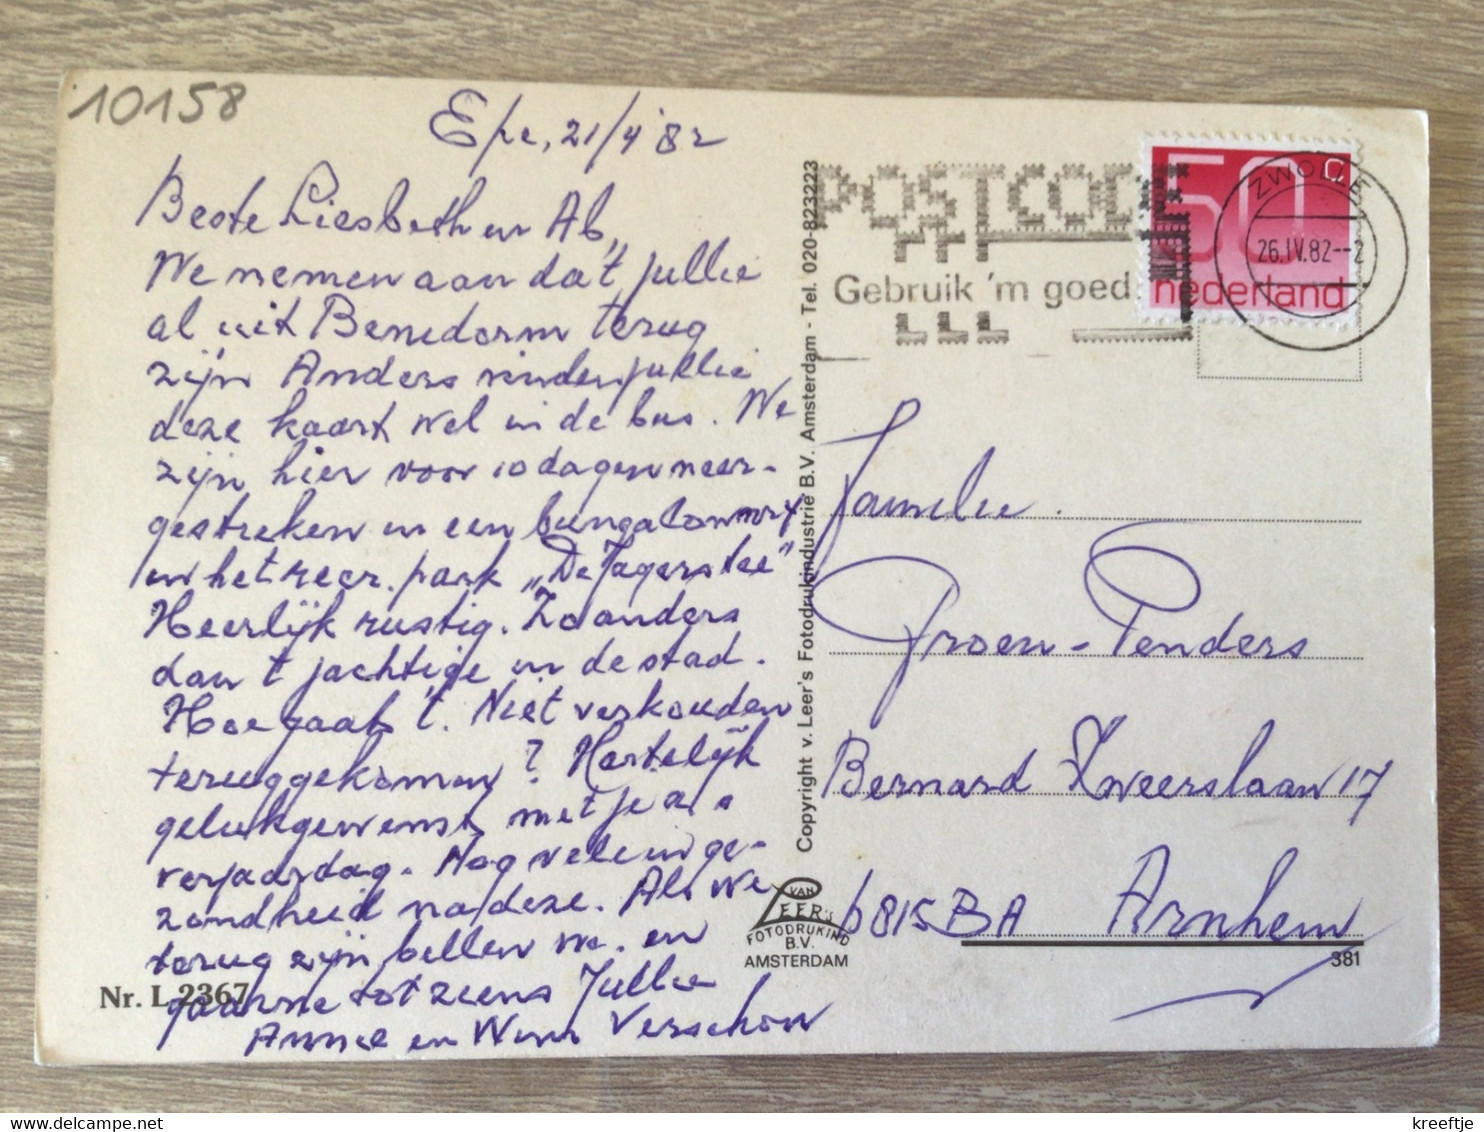 10158
Epe, 21/4 '82
Beste Liesbeth en Ab,
We nemen aan dat jullie
al uit Benidorm terug
zijn Anders vinden jullie
deze kaart wel in de bus. We
zijn hier voor 10 dagen neer-
gestreken in een bungalow
in het recr. park „De Jagerstee"
Heerlijk rustig. Zo anders
dan 't jachtige in de stad.
Hoe gaat 't. Niet verkouden
teruggekomen? Hartelijk
gelukgewenst met je a.s
verjaardag. Nog vele in ge-
zondheid na deze. Als we
terug zijn bellen we. en
gaarne tot ziens Jullie
Annie en Wim Verschow
Nr. L 2367
Copyright v. Leer's Fotodrukindustrie B.V. Amsterdam - Tel. 020-823223
POSTCODE
Gebruik 'm goed.
50 c
nederland
ZWOLLE
26.IV.82--2
Familie
Groen-Penders
Bernard Zweerslaan 17
6815 BA Arnhem
381
VAN
LEER's
FOTODRUKIND
B.V.
AMSTERDAM
© kreeftje